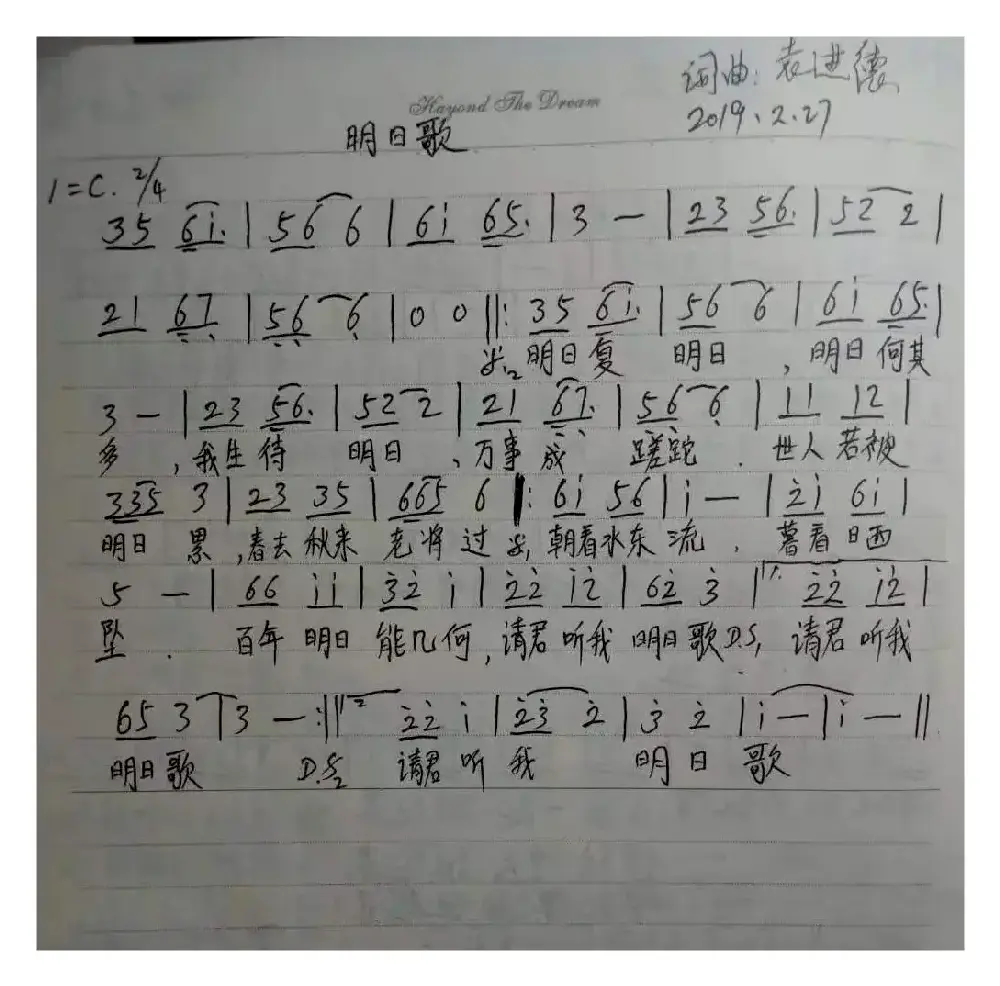 词曲: 袁进德
Hayond The Dream
2019.2.27
明日歌
1=C. 2/4
35 6i. | 56 6 | 6i 65. | 3 — | 23 56. | 52 2 |
21 67 | 56 6 | 0 0 ||: 35 6i. | 56 6 | 6i 65. |
明日复 明日 , 明日何其
3 — | 23 56. | 52 2 | 21 67. | 56 6 | 11 12 |
多 , 我生待 明日 , 万事成 蹉跎 . 世人若被
335 3 | 23 35 | 665 6 |: 6i 56 | i — | 2i 6i |
明日 累 , 春去秋来 老将过 朝看水东流 . 暮看日西
5 — | 66 ii | 32 i | 22 i2 | 62 3 | 1. 22 i2 |
坠 . 百年明日能几何, 请君听我明日歌 D.S, 请君听我
65 3 | 3 — :|| 2 22 i | 23 2 | 3 2 | i — | i — ||
明日歌 D.S2 请君听我 明日歌